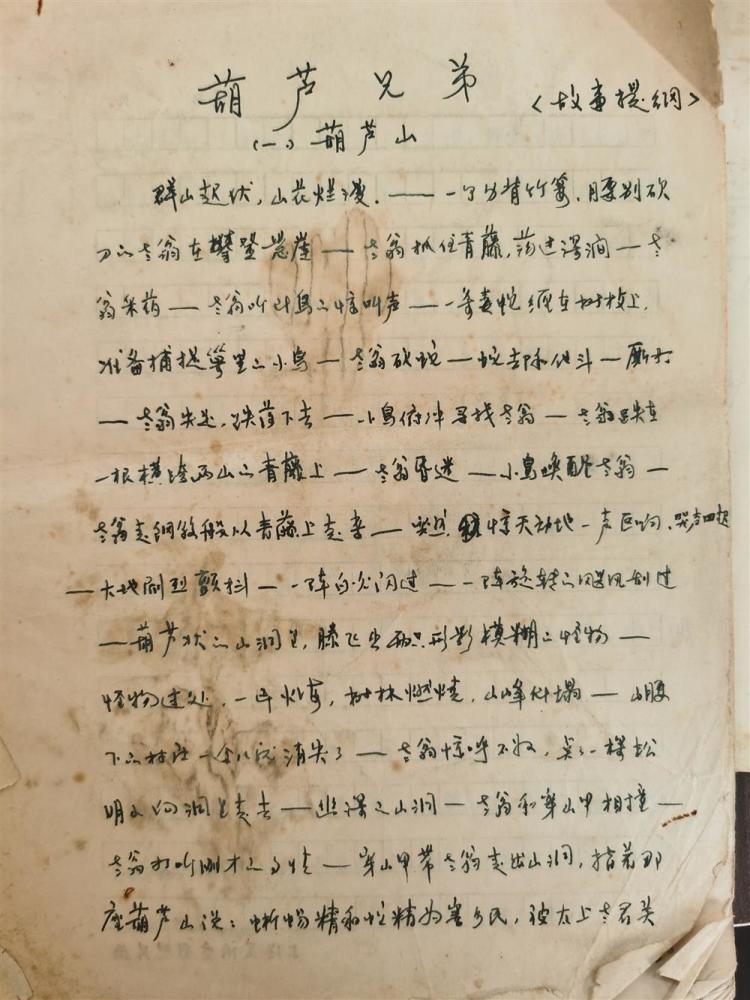 葫芦兄弟 <故事提纲>
(一) 葫芦山
群山起伏，山花烂漫. —— 一个身背竹篓、腰别砍
刀的老翁在攀登悬崖 — 老翁抓住青藤，荡过深涧 — 老
翁采药 — 老翁听到鸟的惊叫声 — 一条毒蛇缠在树枝上，
准备捕捉巢里的小鸟 — 老翁砍蛇 — 蛇却和他斗 — 厮打
— 老翁失足，跌落下去 — 小鸟俯冲寻找老翁 — 老翁跌在
一根横跨两山的青藤上 — 老翁昏迷 — 小鸟唤醒老翁 —
老翁走钢丝般从青藤上走来 — 突然，惊天动地一声巨响、哭声四起
— 大地剧烈颤抖 — 一阵白光闪过 — 一阵旋转的飓风刮过
— 葫芦状的山洞里，腾飞出两只形影模糊的怪物 —
怪物过处，一片火海，树林燃烧，山峰倒塌 — 山腰
下的村庄一个个消失了 — 老翁惊呼不好，点了一根松
明又向洞里走去 — 幽深的山洞 — 老翁和穿山甲相撞 —
老翁打听刚才的事情 — 穿山甲带老翁走出山洞，指着那
座葫芦山说：蜥蜴精和蛇精为害乡民，被太上老君关